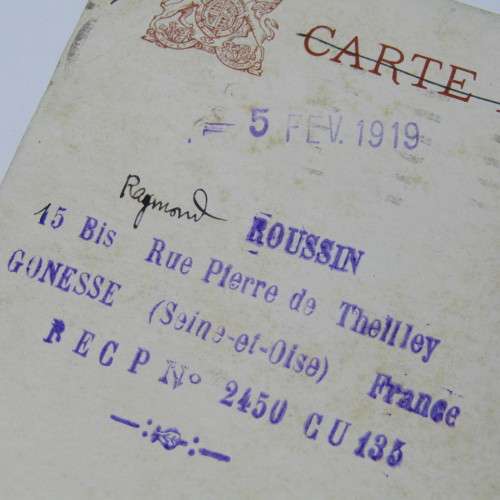 CARTE
- 5 FEV. 1919
Raymond ROUSSIN
15 Bis Rue Pierre de Thellley
GONESSE (Seine-et-Oise) France
RECP No 2450 CU 135